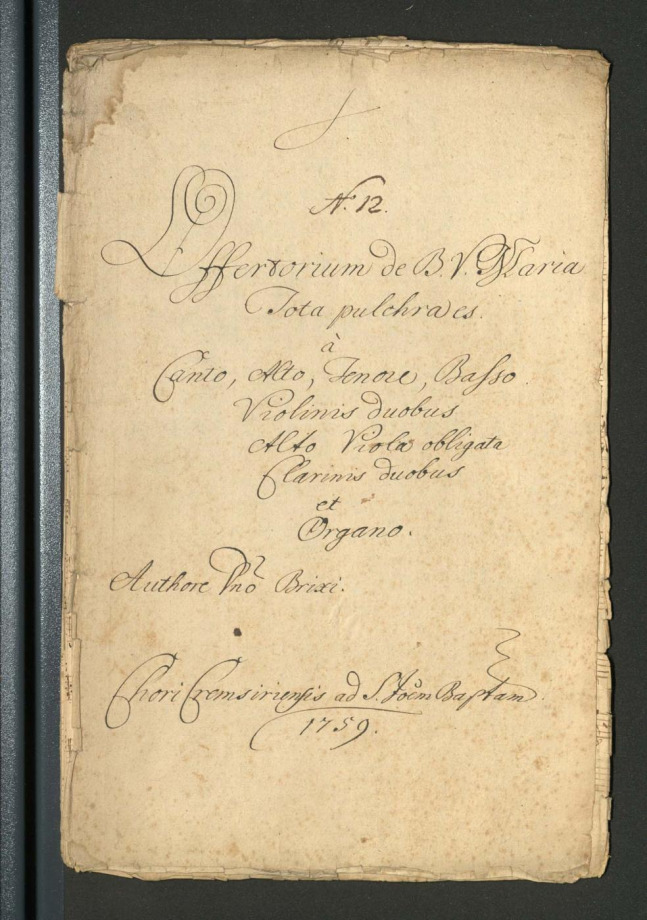 N. 12.
Offertorium de B. V. Maria
Tota pulchra es.
à
Canto, Alto, Tenore, Basso
Violinis duobus
Alto Viola obligata
Clarinis duobus
et
Organo.
Authore Dno Brixi.
Chori Cremsiriensis ad S. Joêm Baptam.
1759.